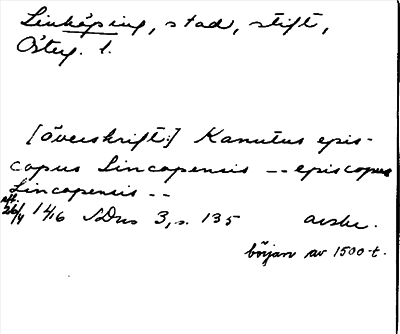 Linköping, stad, stift,
Östg. l.
[överskrift:] Kanutus epis-
copus Lincopensis -- episcopus
Lincopensis --
eft.
26/4 1416 SDns 3, s. 135 avskr.
början av 1500-t.